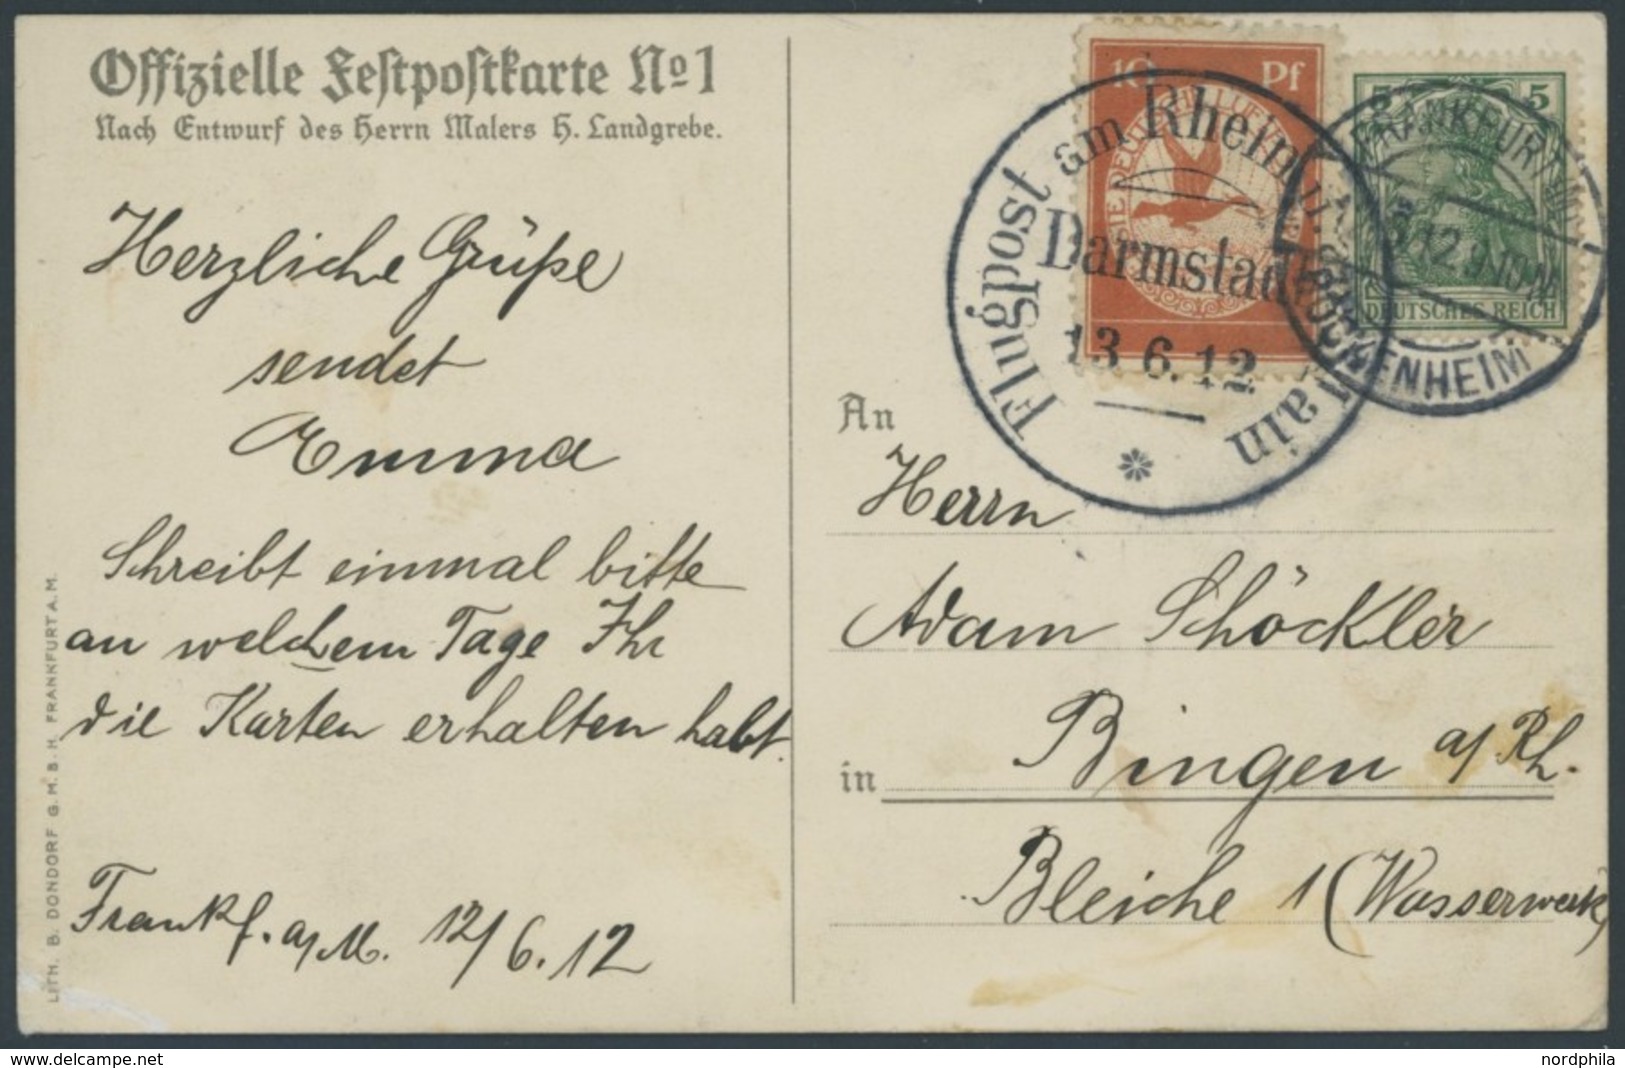 Offizielle Festpostkarte No 1
Nach Entwurf des Herrn Malers H. Landgrebe.
Herzliche Grüße
sendet
Emma
Schreibt einmal bitte
an welchem Tage Ihr
die Karten erhalten habt.
Frankf. a/M. 12/6.12
LITH. B. DONDORF G.M.B.H. FRANKFURT A.M.
10 Pf
Flugpost am Rhein u. Main
Darmstadt
13.6.12
5 5
DEUTSCHES REICH
FRANKFURT
BOCKENHEIM
An
Herrn
Adam Schöckler
in Bingen a/Rh.
Bleiche 1 (Wasserwerk)
www.delcampe.net
nordphila